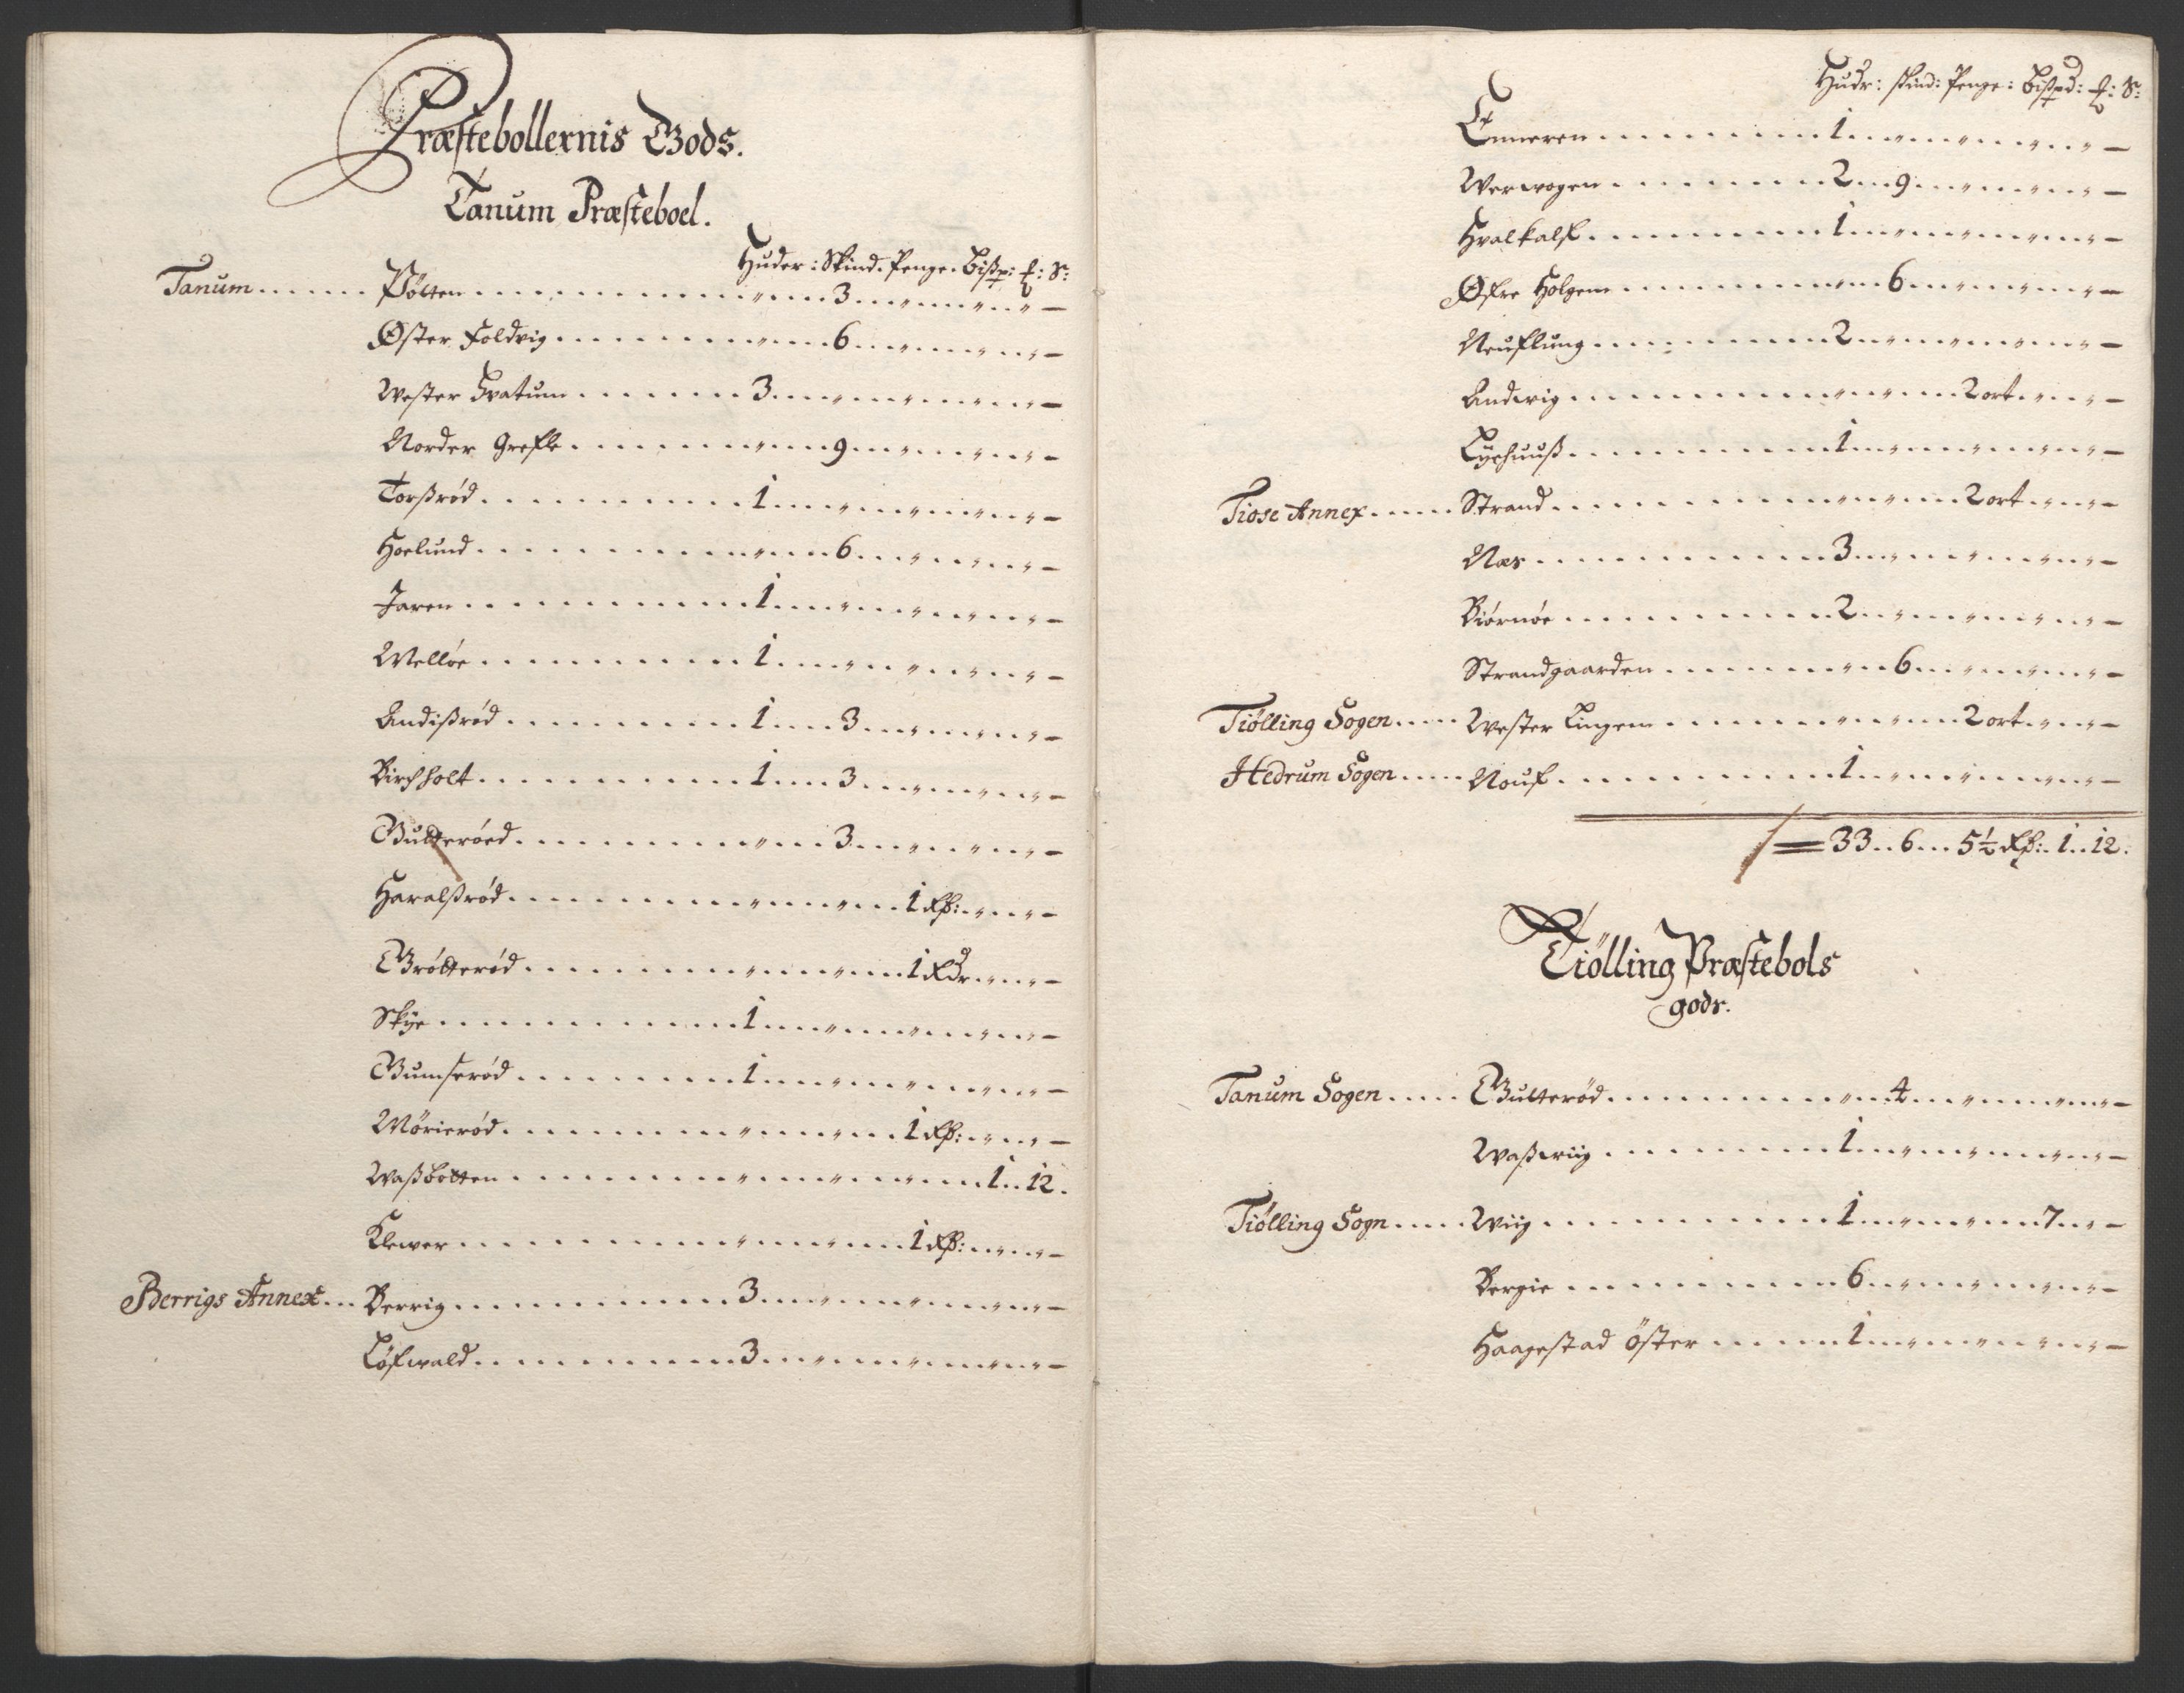 Præstebollernis Gods.
Tanum Præsteboel.
Huder: Skind. Penge. Bißp: ℔: S:
Tanum...... Pøtten................ " .... 3 .... " .... " .. " —
Øster Foldvig............ " .... 6 .... " .... " .. " —
Wester Hvatum....... 3 .... " .... " .... " .. " —
Norder Grefle......... " .... 9 .... " .... " .. " —
Torßrød........... 1 .... " .... " .... " .. " —
Hoelund............ " .... 6 .... " .... " .. " —
Jaren............ 1 .... " .... " .... " .. " —
Welløe........... 1 .... " .... " .... " .. " —
Andißrød.......... 1 .... 3 .... " .... " .. " —
Birchholt........... 1 .... 3 .... " .... " .. " —
Gulterøed.......... " .... 3 .... " .... " .. " —
Haralßrød.......... " .... " .... 1 ℔: .. " .. " —
Brøtterød.......... " .... " .... 1 Fdr .. " .. " —
Skye............ 1 .... " .... " .... " .. " —
Gumserød.......... 1 .... " .... " .... " .. " —
Mørierød.......... " .... " .... 1 ℔: .. " .. " —
Waßbotten.......... " .... " .... " .... 1 .. 12.
Klewer............ " .... " .... 1 ℔: .. " .. " —
Berrigs Annex... Berrig............ 3 .... " .... " .... " .. " —
Løfwald........... 3 .... " .... " .... " .. " —
Hudr: skind: Penge: Bißpd: ℔: S:
Enneren.......... 1 .... " .... " .... " .. " —
Werwogen......... 2 .... 9 .... " .... " .. " —
Hvalkalf.......... 1 .... " .... " .... " .. " —
Øfre Holgem......... " .... 6 .... " .... " .. " —
Neuflung.......... 2 .... " .... " .... " .. " —
Andwig........... " .... " .... 2 ort .. " .. " —
Lyshuuß........... 1 .... " .... " .... " .. " —
Tiose Annex..... Strand........... " .... " .... 2 ort .. " .. " —
Næs............ 3 .... " .... " .... " .. " —
Biørnøe........... 2 .... " .... " .... " .. " —
Strandgaarden........ " .... 6 .... " .... " .. " —
Tiølling Sogen..... Wester Lingem........ " .... " .... 2 ort .. " .. " —
Hedrum Sogen..... Nouf............ 1 .... " .... " .... " .. " —
33 .. 6 ... 5½ ℔: .. 1 .. 12.
Tiølling Præstebols
gods.
Tanum Sogen..... Gulterød.......... " .... 4 .... " .... " .. " —
Waßwiig.......... 1 .... " .... " .... " .. " —
Tiølling Sogn..... Wiig............ 1 .... " .... " .... 7 .. " —
Bergie........... 6 .... " .... " .... " .. " —
Haagestad Öster....... 1 .... " .... " .... " .. " —